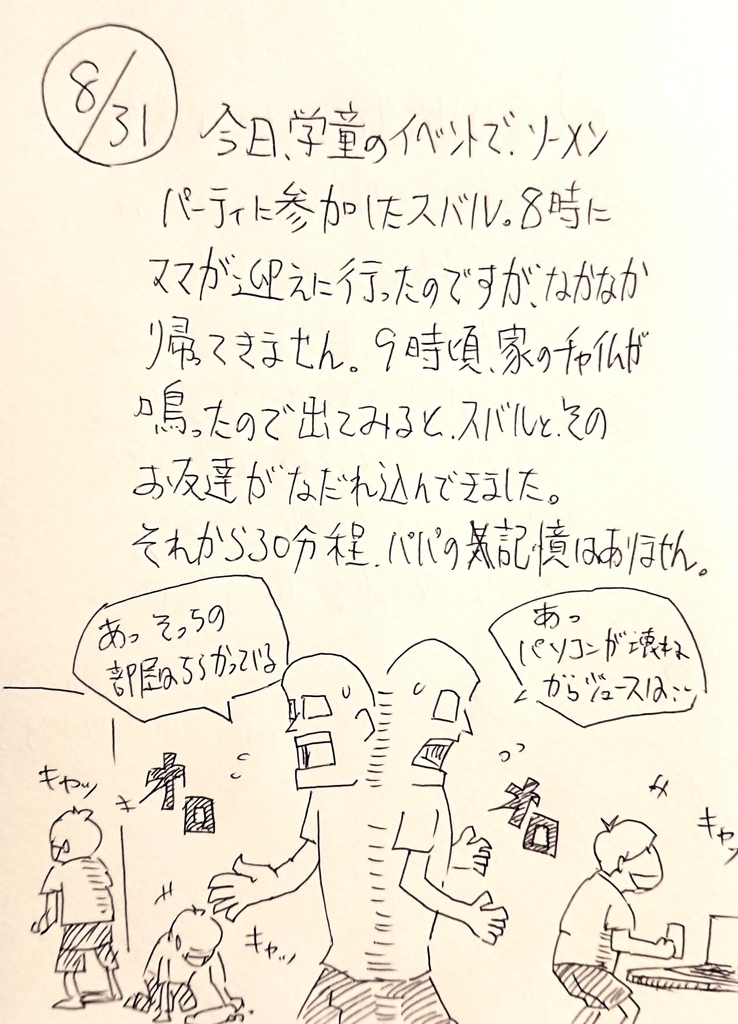 8/31
今日、学童のイベントで、ソーメン
パーティに参加したスバル。8時に
ママが迎えに行ったのですが、なかなか
帰ってきません。9時頃、家のチャイムが
鳴ったので出てみると、スバルと、その
お友達がなだれ込んできました。
それから30分程、パパの記憶はありません。
あっ そっちの
部屋はちらかっている
あっ
パソコンが壊れる
からジュースは…
オロ
オロ
キャッ
キャッ
キャッ